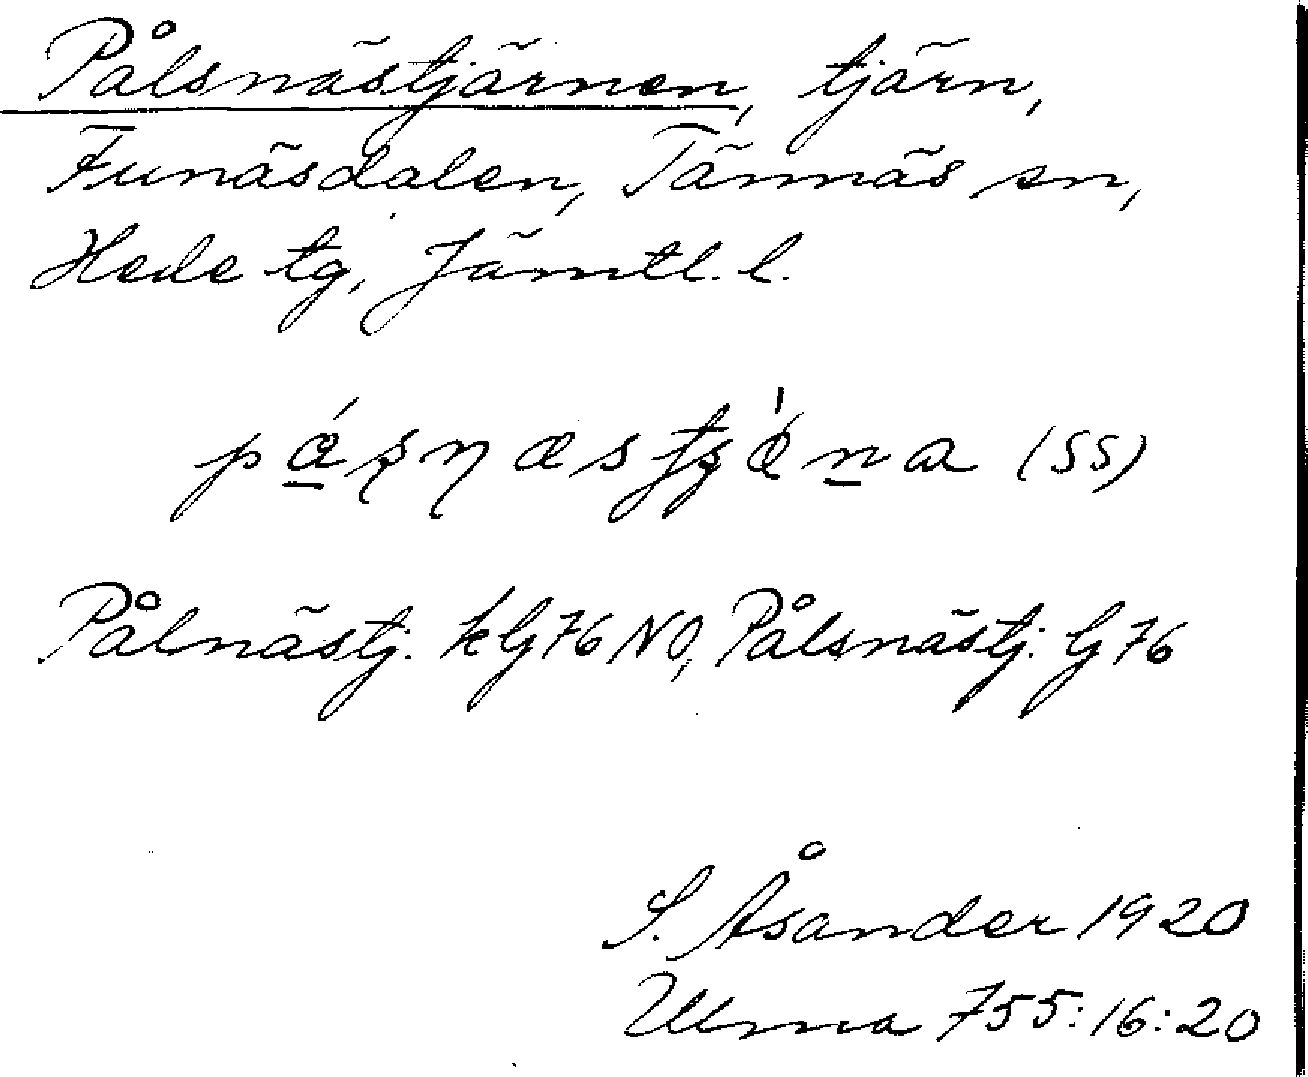 Pålsnästjärnen, tjärn,
Funäsdalen, Tännäs sn,
Hede tg, Jämtl. l.
(SS)
Pålnästj. kG76NO, Pålsnästj. G76
S. Åsander 1920
Ulma 755:16:20